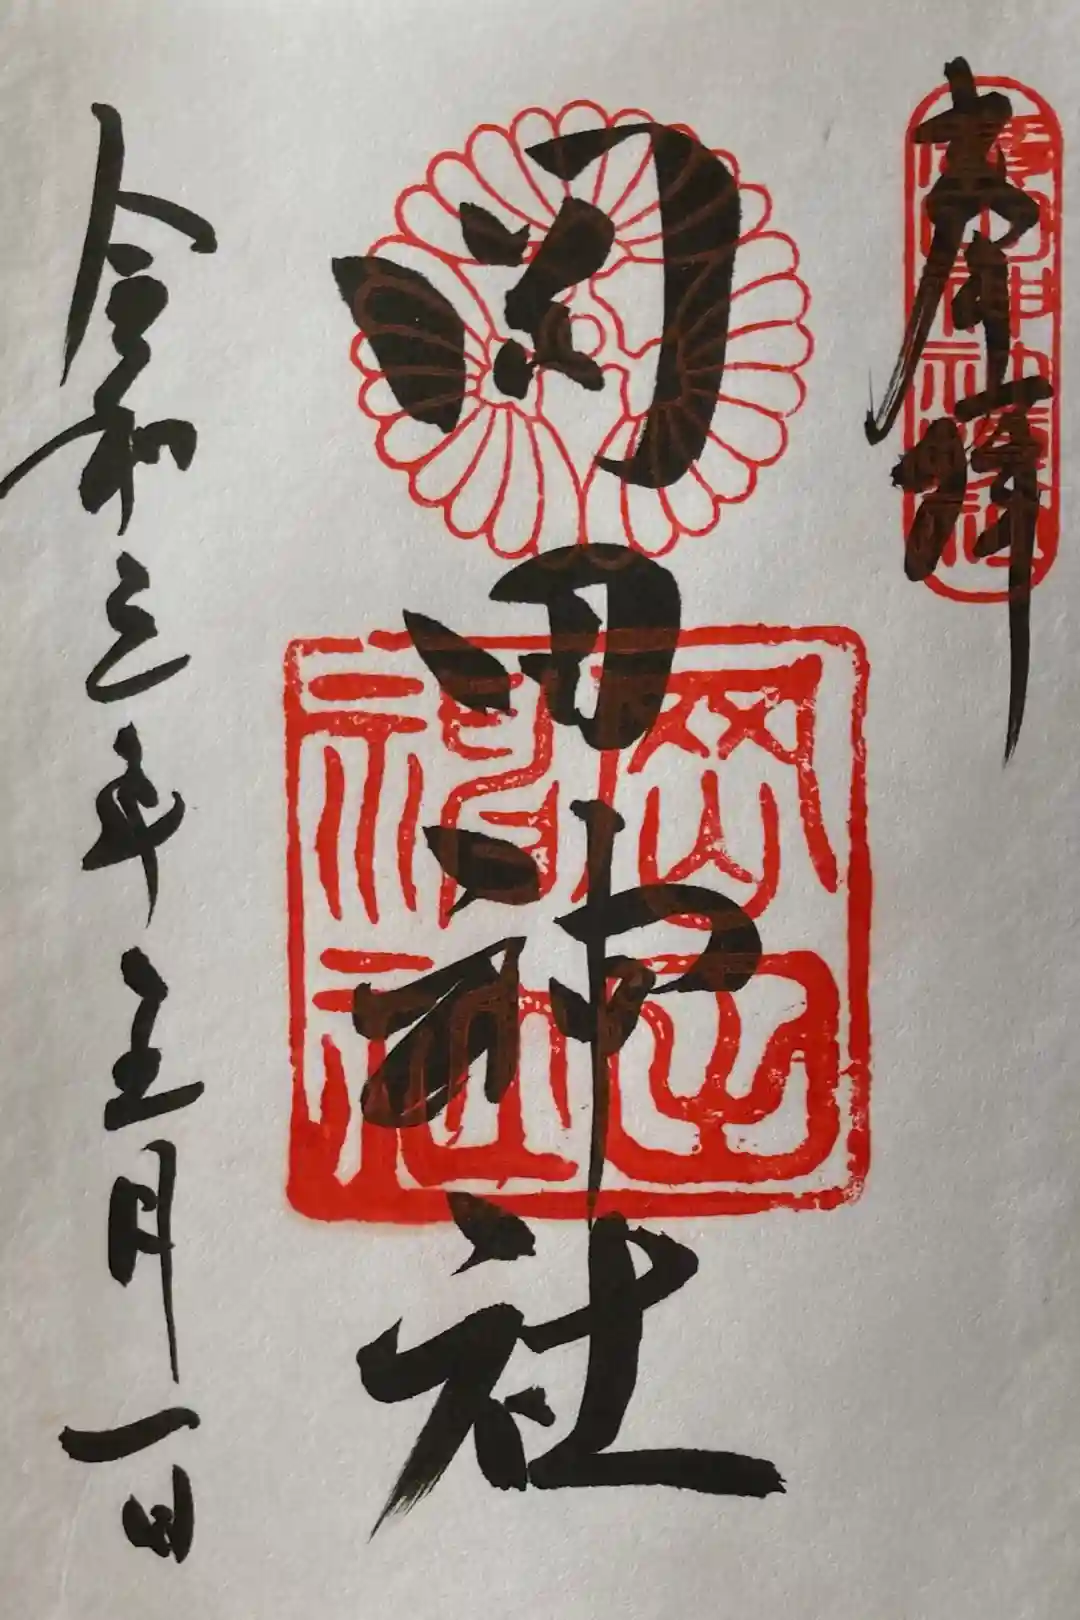 奉拝
岡田神社
令和三年五月一日